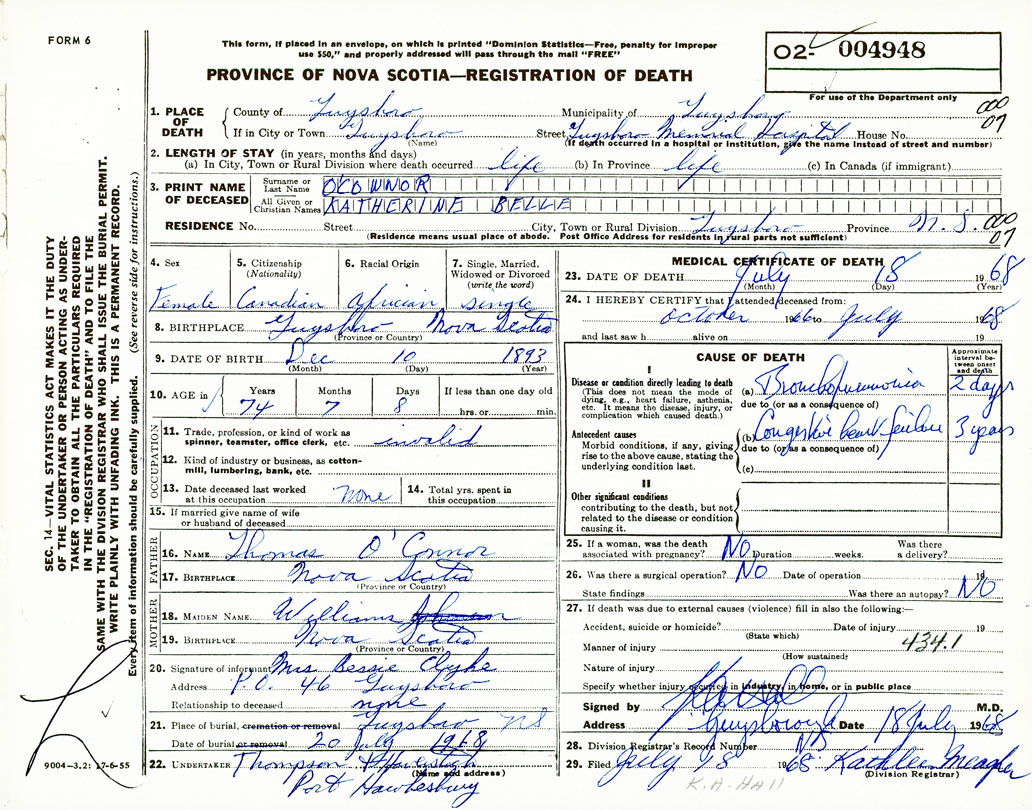 FORM 6
This form, if placed in an envelope, on which is printed "Dominion Statistics—Free, penalty for improper
use $50," and properly addressed will pass through the mail "FREE"
PROVINCE OF NOVA SCOTIA—REGISTRATION OF DEATH
02- 004948
For use of the Department only
SEC. 14—VITAL STATISTICS ACT MAKES IT THE DUTY
OF THE UNDERTAKER OR PERSON ACTING AS UNDER-
TAKER TO OBTAIN ALL THE PARTICULARS REQUIRED
IN THE "REGISTRATION OF DEATH" AND TO FILE THE
SAME WITH THE DIVISION REGISTRAR WHO SHALL ISSUE THE BURIAL PERMIT.
WRITE PLAINLY WITH UNFADING INK. THIS IS A PERMANENT RECORD.
Every item of information should be carefully supplied. (See reverse side for instructions.)
1. PLACE OF DEATH
County of Guysboro Municipality of Guysboro 000 07
If in City or Town Guysboro (Name) Street Guysboro Memorial Hospital House No.
(If death occurred in a hospital or institution, give the name instead of street and number)
2. LENGTH OF STAY (in years, months and days)
(a) In City, Town or Rural Division where death occurred life (b) In Province life (c) In Canada (if immigrant)
3. PRINT NAME OF DECEASED
Surname or Last Name O'CONNOR
All Given or Christian Names KATHERINE BELLE
RESIDENCE No. Street City, Town or Rural Division Guysboro Province N.S. 000 07
(Residence means usual place of abode. Post Office Address for residents in rural parts not sufficient)
4. Sex Female
5. Citizenship (Nationality) Canadian
6. Racial Origin African
7. Single, Married, Widowed or Divorced (write the word) single
8. BIRTHPLACE Guysboro Nova Scotia
(Province or Country)
9. DATE OF BIRTH Dec 10 1893
(Month) (Day) (Year)
10. AGE in Years 74 Months 7 Days 8 If less than one day old hrs. or min.
OCCUPATION
11. Trade, profession, or kind of work as spinner, teamster, office clerk, etc. invalid
12. Kind of industry or business, as cotton-mill, lumbering, bank, etc.
13. Date deceased last worked at this occupation none
14. Total yrs. spent in this occupation
15. If married give name of wife or husband of deceased
FATHER
16. NAME Thomas O'Connor
17. BIRTHPLACE Nova Scotia
(Province or Country)
MOTHER
18. MAIDEN NAME Williams
19. BIRTHPLACE Nova Scotia
(Province or Country)
20. Signature of informant Mrs Bessie Clyke
Address P.O. 46 Guysboro
Relationship to deceased none
21. Place of burial, cremation or removal Guysboro NS
Date of burial or removal 20 July 1968
22. UNDERTAKER Thompson
(Name and address)
Port Hawkesbury
9004-3.2: 17-6-55
MEDICAL CERTIFICATE OF DEATH
23. DATE OF DEATH July 18 1968
(Month) (Day) (Year)
24. I HEREBY CERTIFY that I attended deceased from:
October 1966 to July 1968
and last saw h alive on 19
CAUSE OF DEATH
Approximate interval between onset and death
I
Disease or condition directly leading to death
(This does not mean the mode of dying, e.g., heart failure, asthenia, etc. It means the disease, injury, or complication which caused death.)
(a) Bronchopneumonia 2 days
due to (or as a consequence of)
Antecedent causes
Morbid conditions, if any, giving rise to the above cause, stating the underlying condition last.
(b) Congestive heart failure 3 years
due to (or as a consequence of)
(c)
II
Other significant conditions
contributing to the death, but not related to the disease or condition causing it.
25. If a woman, was the death associated with pregnancy? NO Duration weeks. Was there a delivery?
26. Was there a surgical operation? NO Date of operation 19
State findings Was there an autopsy? NO
27. If death was due to external causes (violence) fill in also the following:—
Accident, suicide or homicide? Date of injury 19
(State which)
Manner of injury 434.1
(How sustained)
Nature of injury
Specify whether injury occurred in industry, in home, or in public place
Signed by M.D.
Address Guysborough Date 18 July 1968
28. Division Registrar's Record Number
29. Filed July 18 1968 Kathleen Meagher
(Division Registrar)
K.A. Hall